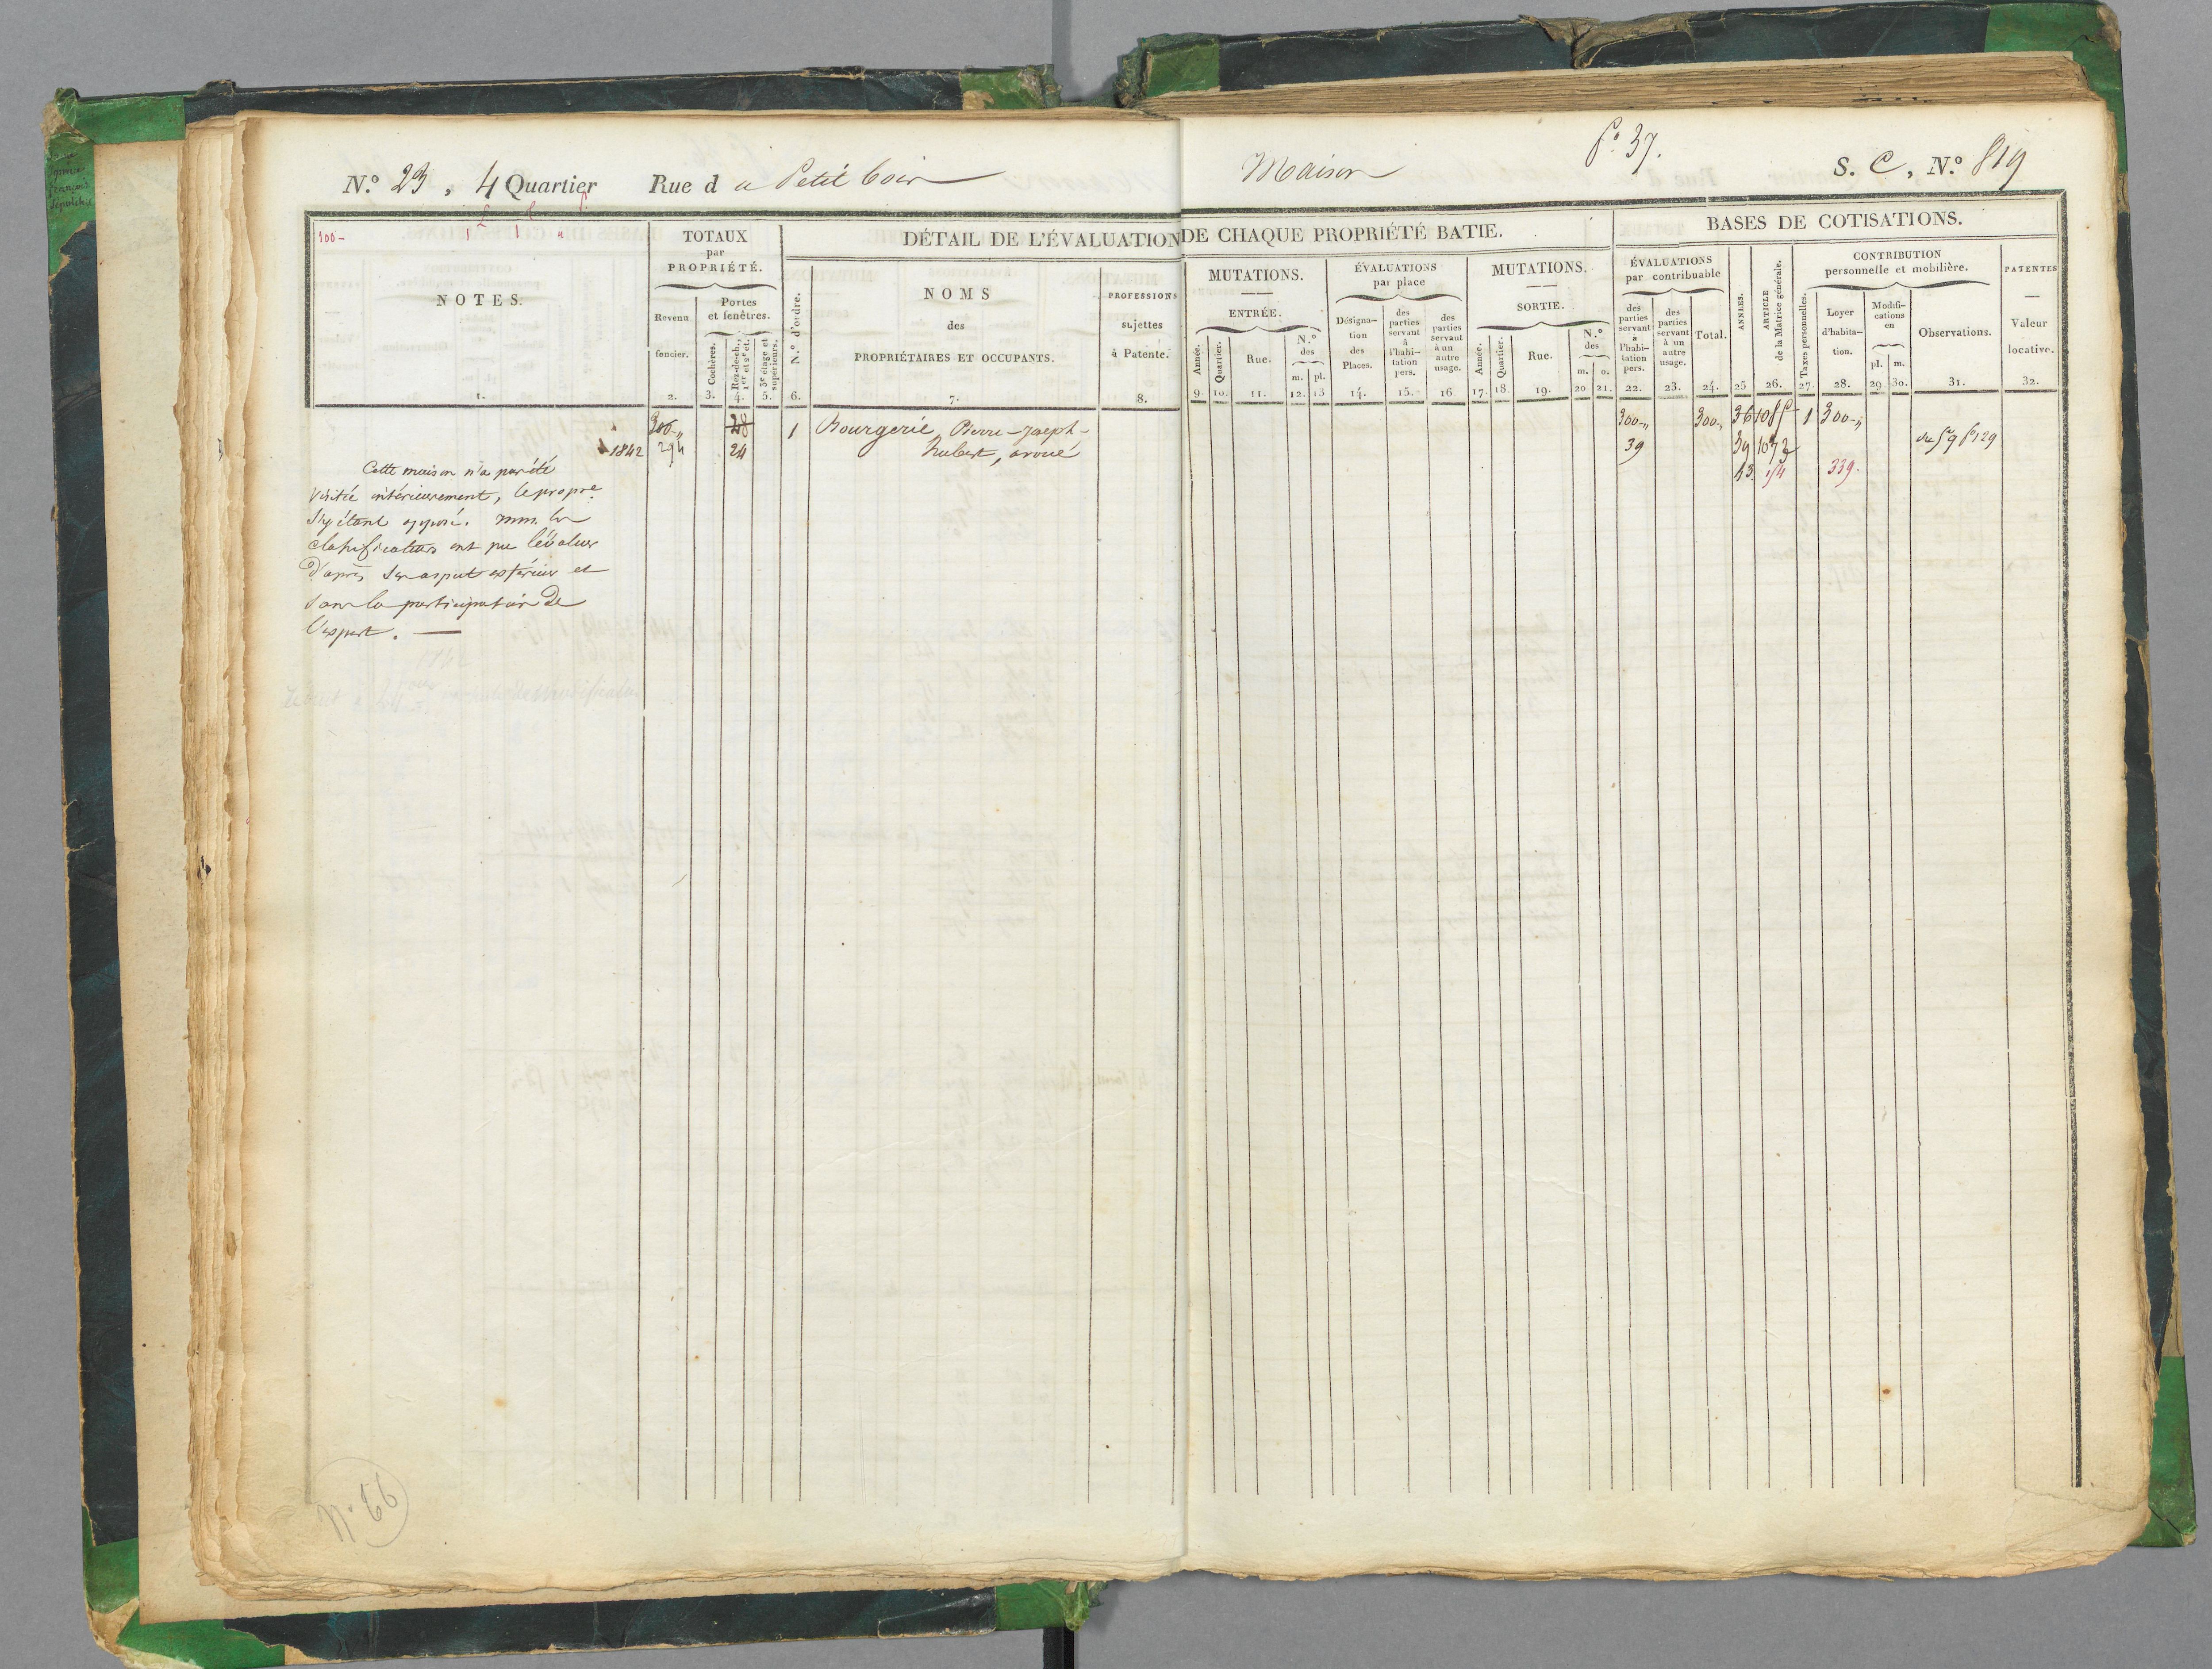 N.º 23, 4 Quartier Rue d u Petit Maison
fº 37.
S. C, N.º 819
100-
NOTES.
1.
TOTAUX
par
PROPRIÉTÉ.
Revenu
foncier.
2.
Portes
et fenêtres.
Cochères.
3.
Rez-de-ch.,
1er et 2e ét.
4.
3e étage et
supérieurs.
5.
DÉTAIL DE L'ÉVALUATION DE CHAQUE PROPRIÉTÉ BATIE.
N.º d'ordre.
6.
NOMS
des
PROPRIÉTAIRES ET OCCUPANTS.
7.
PROFESSIONS
sujettes
à Patente.
8.
MUTATIONS.
ENTRÉE.
Année.
9.
Quartier.
10.
Rue.
11.
N.º
des
m. pl.
12. 13
ÉVALUATIONS
par place
Désigna-
tion
des
Places.
14.
des
parties
servant
à
l'habi-
tation
pers.
15.
des
parties
servant
à un
autre
usage.
16
MUTATIONS.
SORTIE.
Année.
17.
Quartier.
18.
Rue.
19.
N.º
des
m. o.
20 21.
BASES DE COTISATIONS.
ÉVALUATIONS
par contribuable
des
parties
servant
à
l'habi-
tation
pers.
22.
des
parties
servant
à un
autre
usage.
23.
Total.
24.
ANNÉES.
25
ARTICLE
de la Matrice générale.
26.
CONTRIBUTION
personnelle et mobilière.
Taxes personnelles.
27.
Loyer
d'habita-
tion.
28.
Modifi-
cations
en
pl. m.
29 30.
Observations.
31.
PATENTES
Valeur
locative.
32.
300-" 28 1 Bourgerie Pierre-Joseph-
1842 294 24 Hubert, avoué
300-" 300-" 36 1 300-"
39 39 fº 129
43 339.
Cette maison n'a pas été
visitée intérieurement, le propre
s'y étant opposé. mm. les
classificateurs ont pu l'évaluer
d'après son aspect extérieur et
sans la participation de
l'expert.
Nº 66